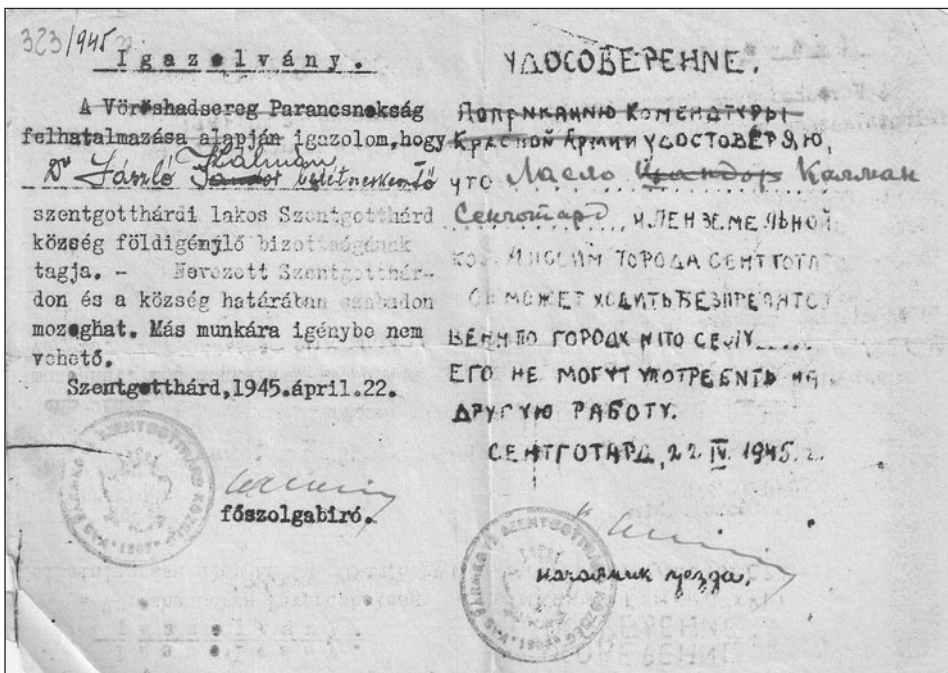 323/945
Igazolvány.
A Vöröshadsereg Parancsnokság
felhatalmazása alapján igazolom, hogy
Dr László Sándor Kálmán
szentgotthárdi lakos Szentgotthárd
község földigénylő bizottságának
tagja. - Nevezett Szentgotthár-
don és a község határában szabadon
mozoghat. Más munkára igénybe nem
vehető.
Szentgotthárd, 1945.április.22.
főszolgabiró.
УДОСОВЕРЕНNЕ.
КОМЕНДАТУРЫ
КРАСНОЙ АРМИИ УДОСТОВЕРЯЮ,
что Ласло Шандор Калман
Сенготард ЧЛЕН ЗЕМЕЛЬНОЙ
ГОРОДА СЕНТГОТАР
МОЖЕТ ХОДИТЬ БЕЗПРЕПЯТСТ
ВЕННО ПО ГОРОДУ
ЕГО НЕ МОГУТ УПОТРЕБИТЬ НА
ДРУГУЮ РАБОТУ.
СЕНТГОТАРД, 22 IV. 1945.г.
начальник уезда.